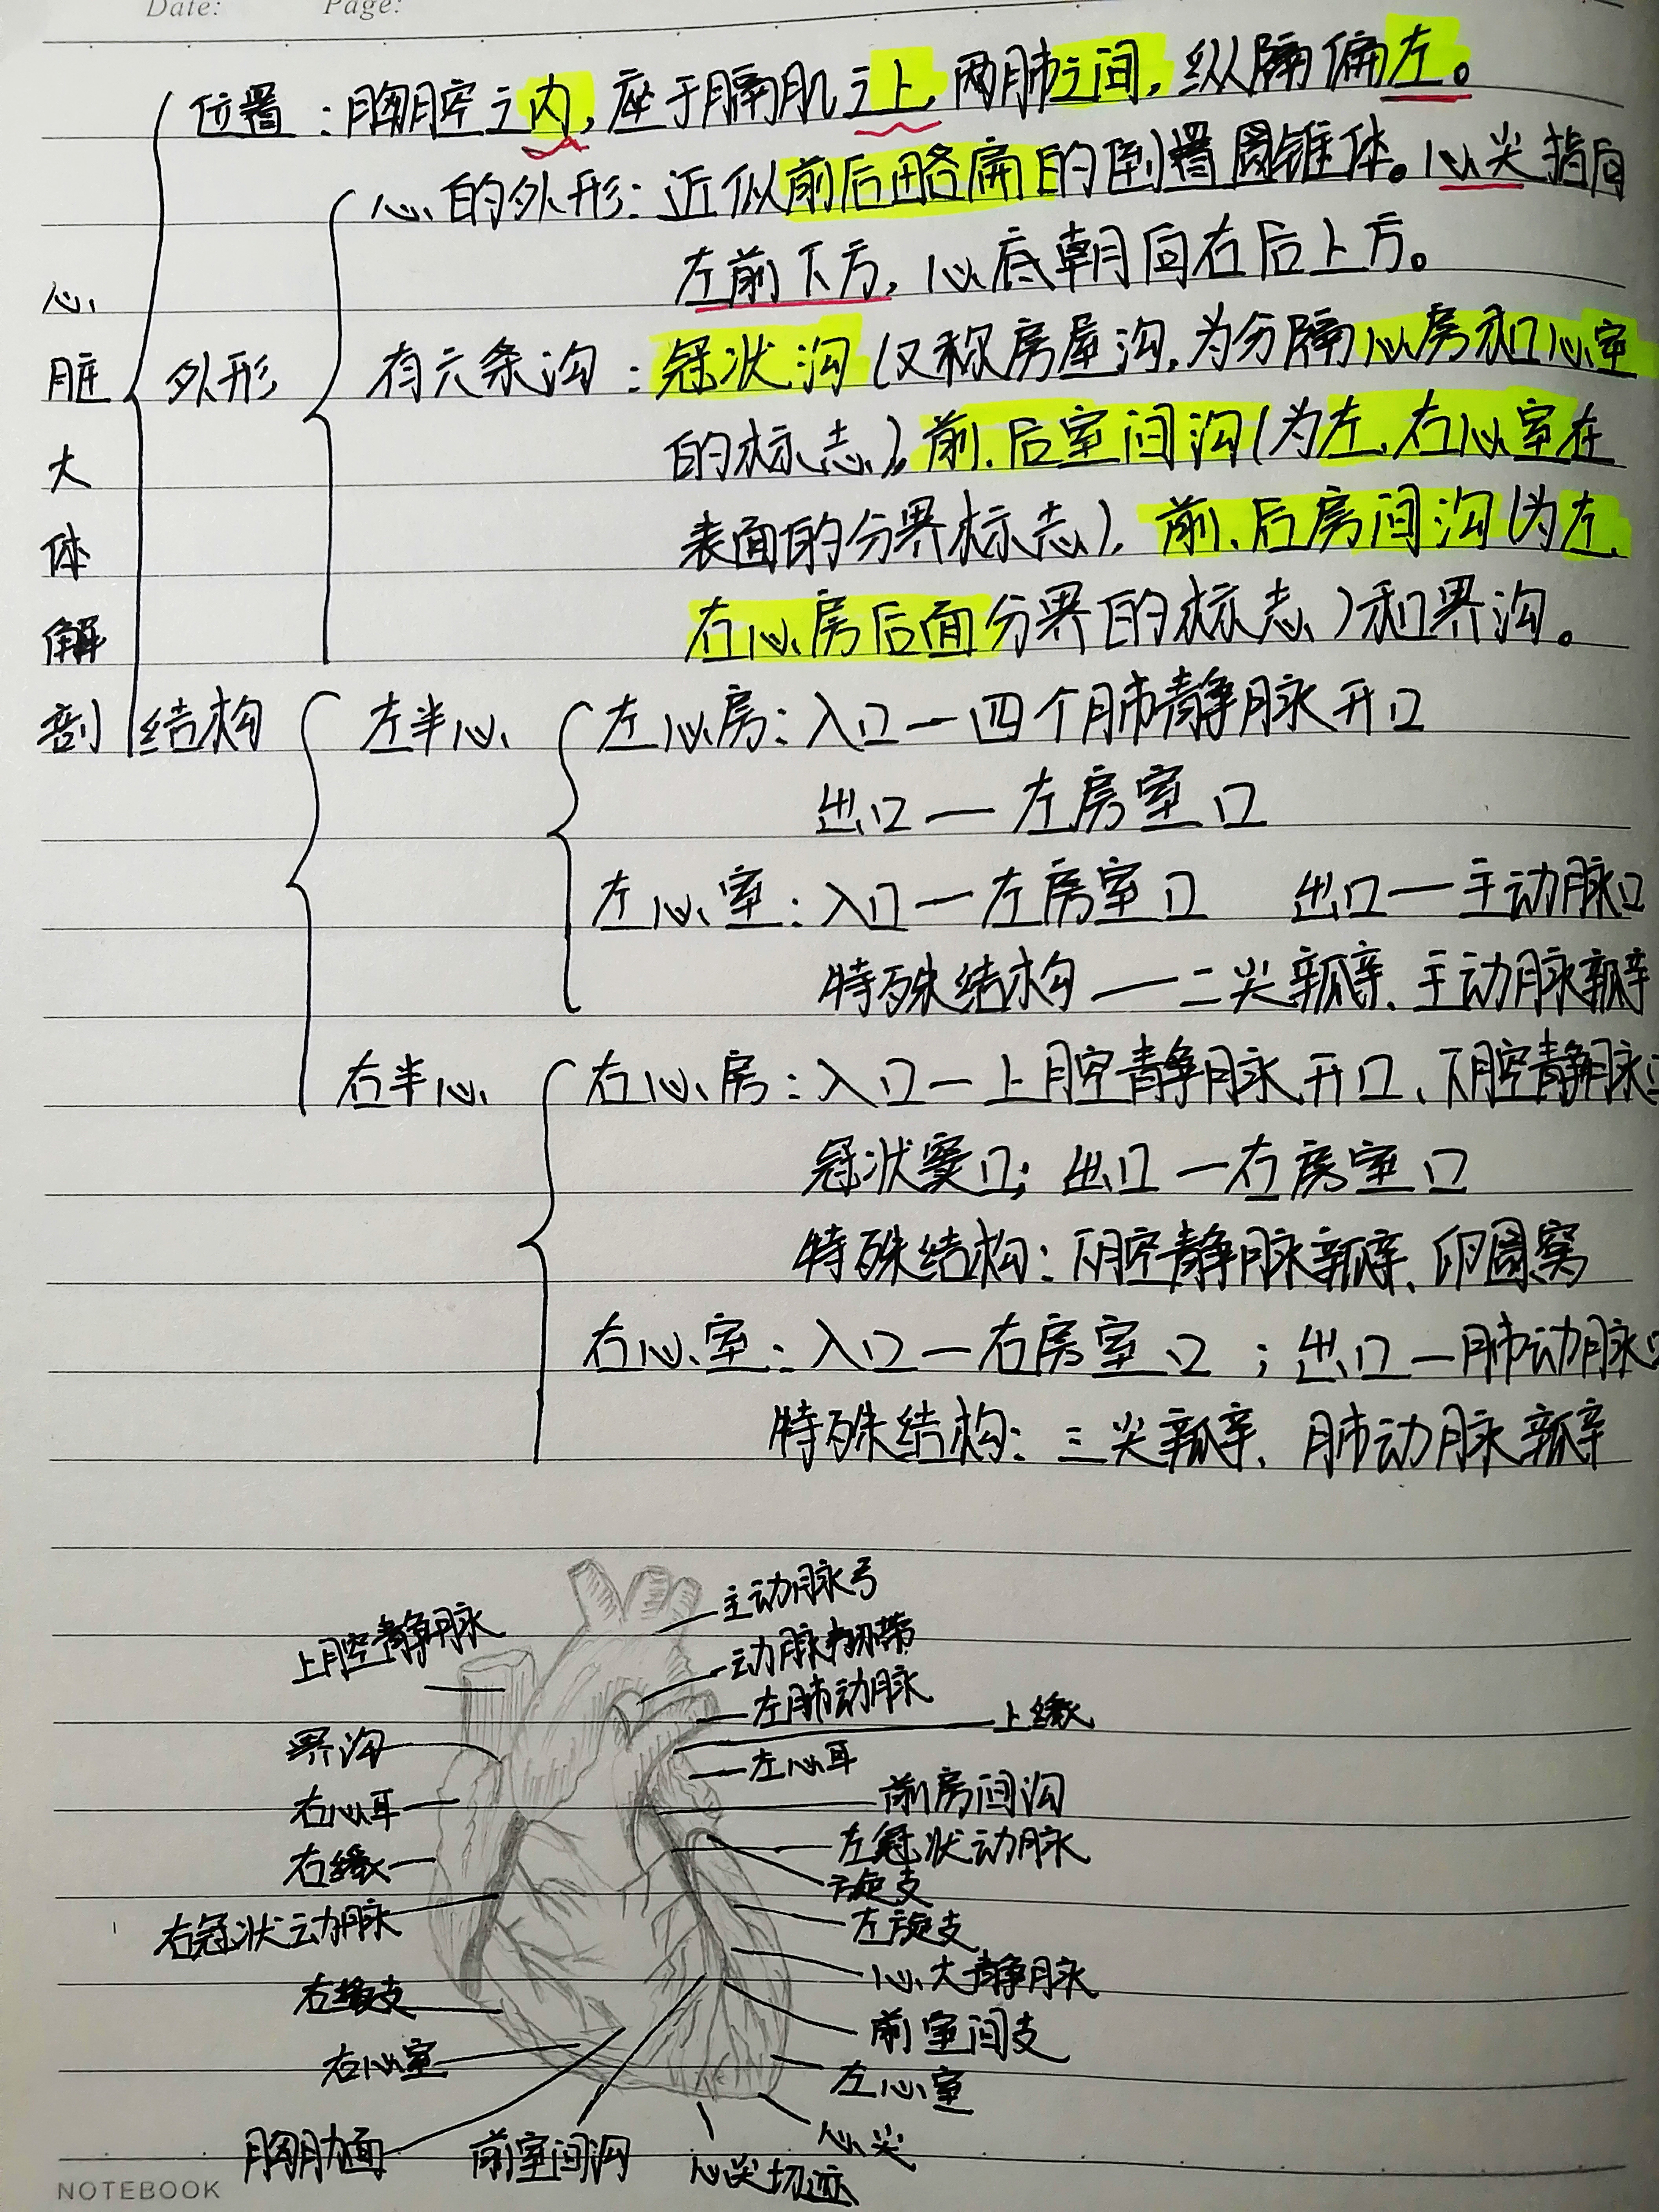 Date: Page:
位置：胸腔之内，座于膈肌之上，两肺之间，纵隔偏左。
心的外形：近似前后略扁的倒置圆锥体。心尖指向
左前下方，心底朝向右后上方。
心脏大体解剖
外形
有六条沟：冠状沟（又称房屋沟，为分隔心房和心室
的标志），前、后室间沟（为左、右心室在
表面的分界标志），前、后房间沟（为左、
右心房后面分界的标志）和界沟。
结构 左半心 左心房：入口—四个肺静脉开口
出口—左房室口
左心室：入口—左房室口 出口—主动脉口
特殊结构—二尖瓣、主动脉瓣
右半心 右心房：入口—上腔静脉开口、下腔静脉
冠状窦口；出口—右房室口
特殊结构：下腔静脉瓣、卵圆窝
右心室：入口—右房室口；出口—肺动脉口
特殊结构：三尖瓣、肺动脉瓣
主动脉弓
上腔静脉
动脉韧带
左肺动脉
上缘
界沟
左心耳
右心耳
前房间沟
左冠状动脉
右缘
旋支
右冠状动脉
左旋支
心大静脉
右缘支
前室间支
右心室
左心室
心尖
胸肋面
前室间沟
心尖切迹
NOTEBOOK